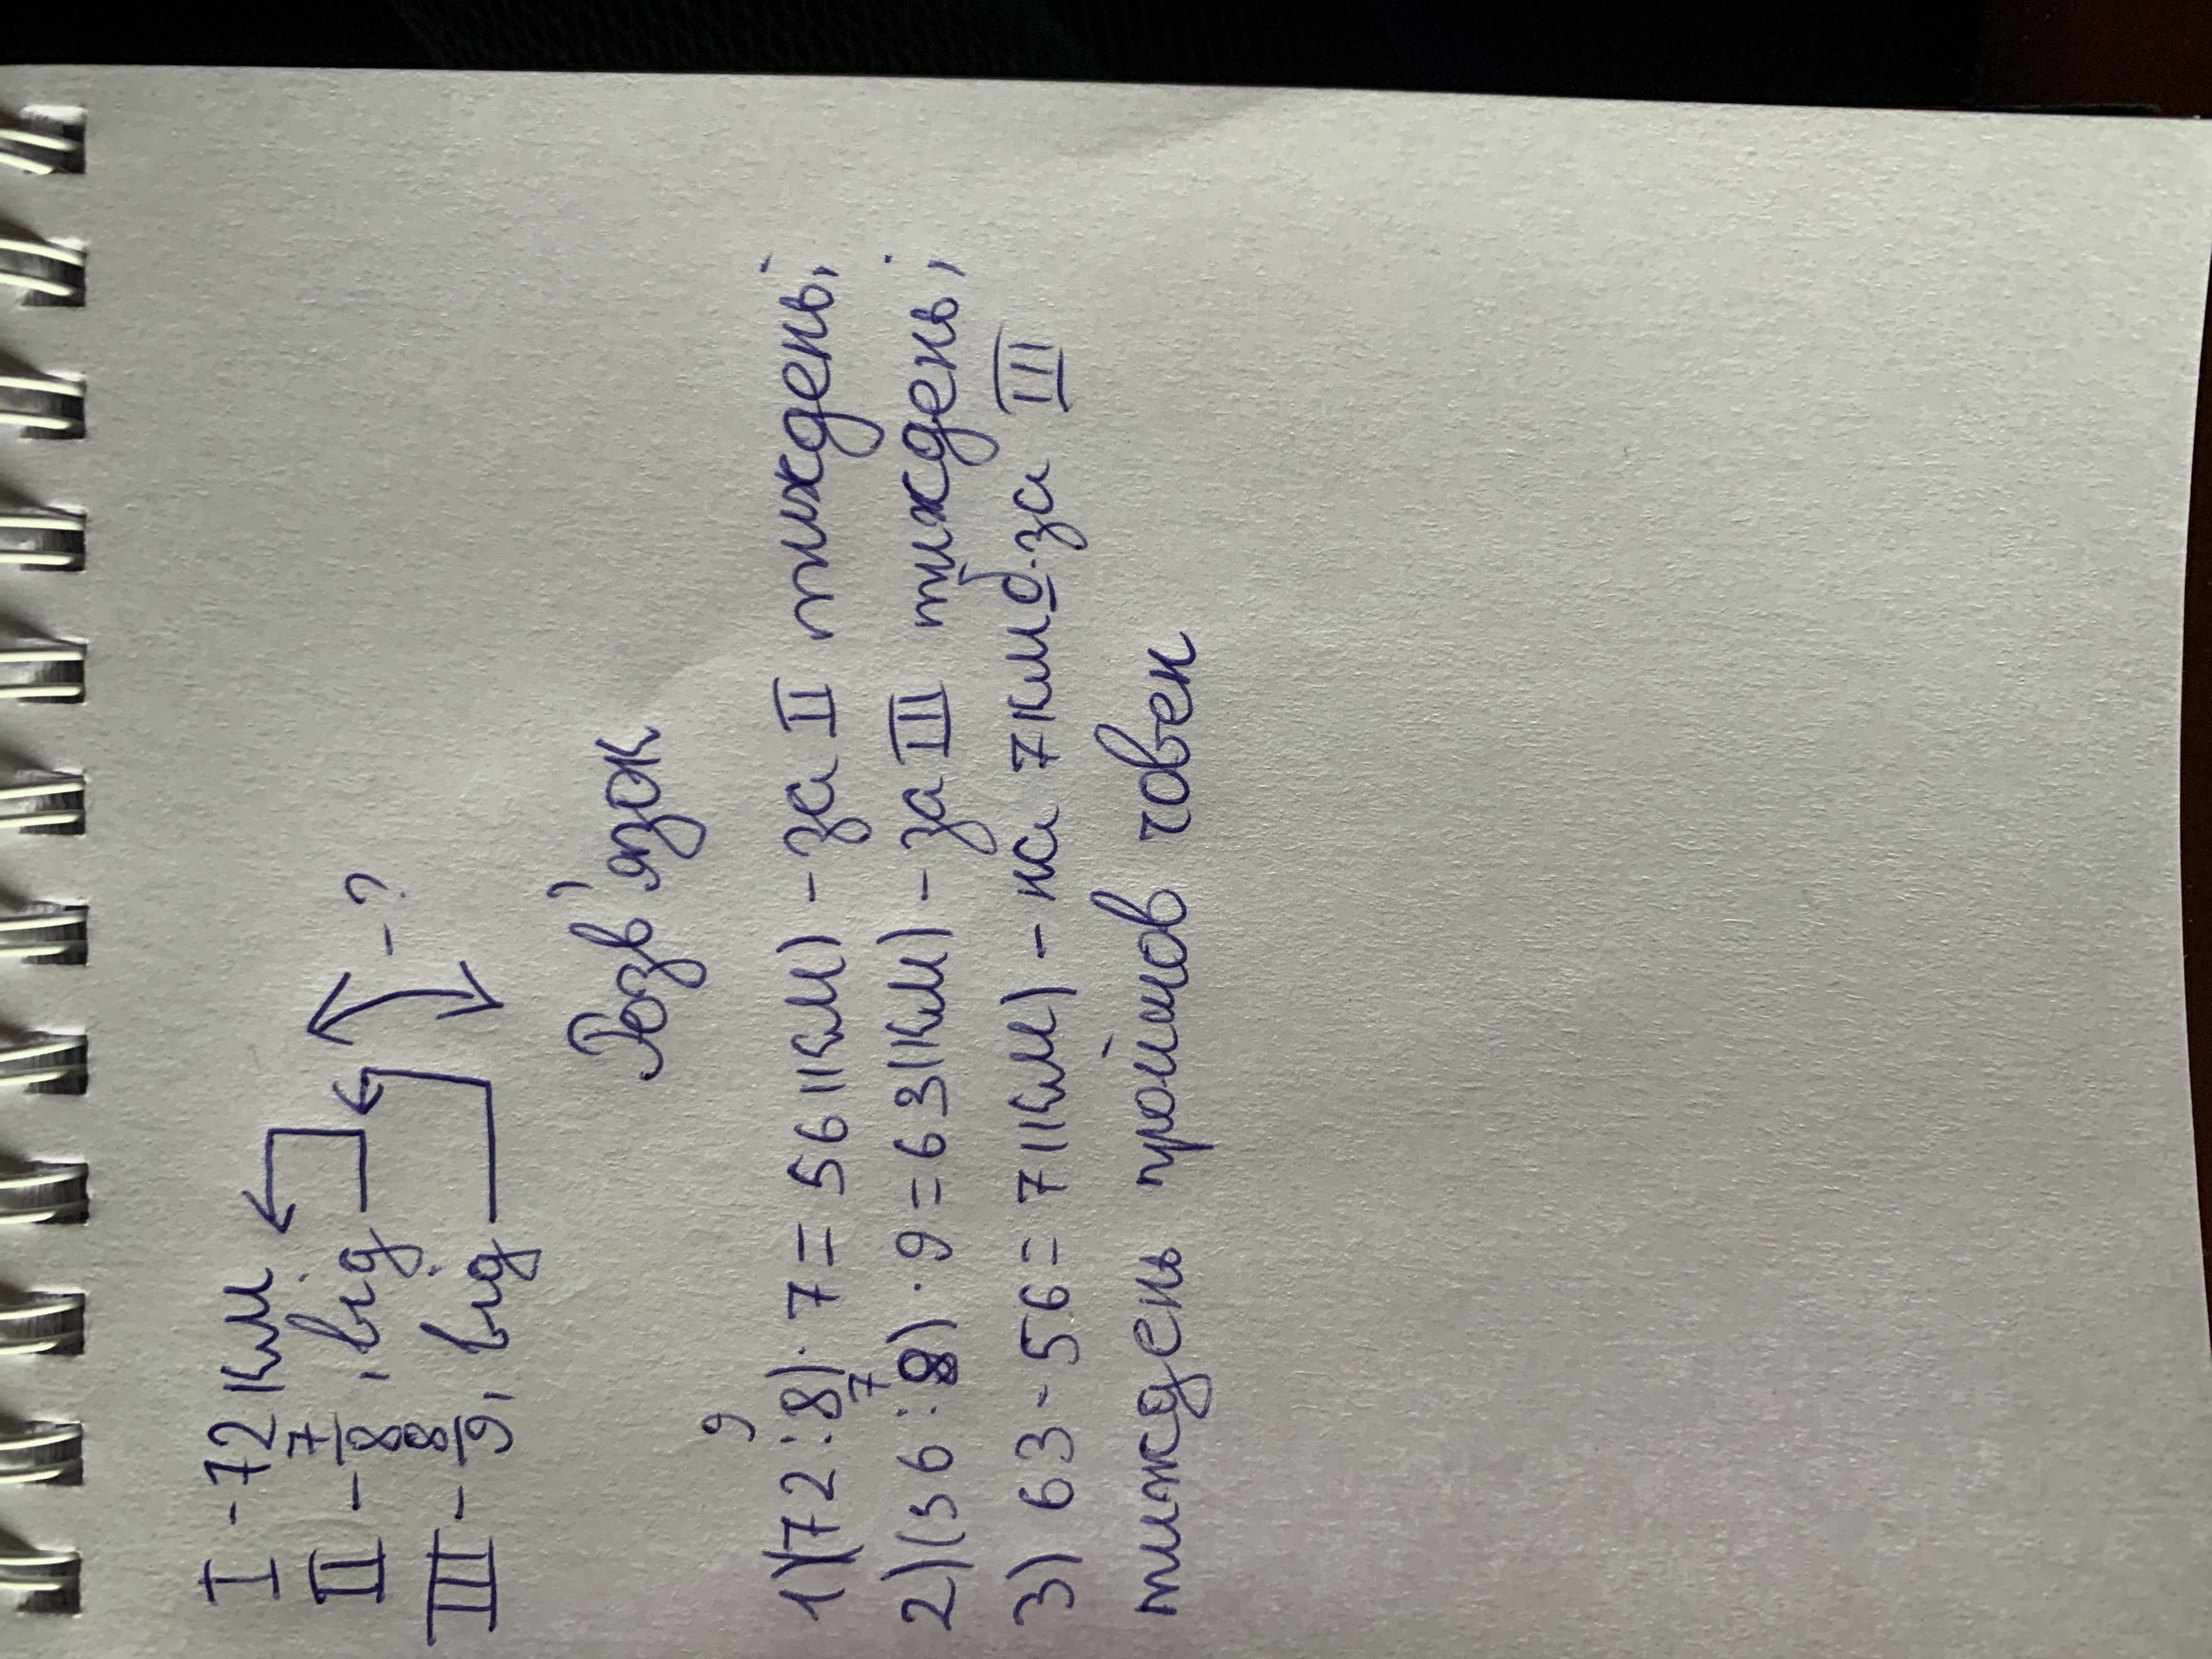 I - 72 км
II - 7/8, від - ?
III - 8/9, від
Розв'язок
9
1) (72 : 8) · 7 = 56 (км) - за II тиждень;
7
2) (56 : 8) · 9 = 63 (км) - за III тиждень;
3) 63 - 56 = 7 (км) - на 7 км б. за III
тиждень пройшов човен